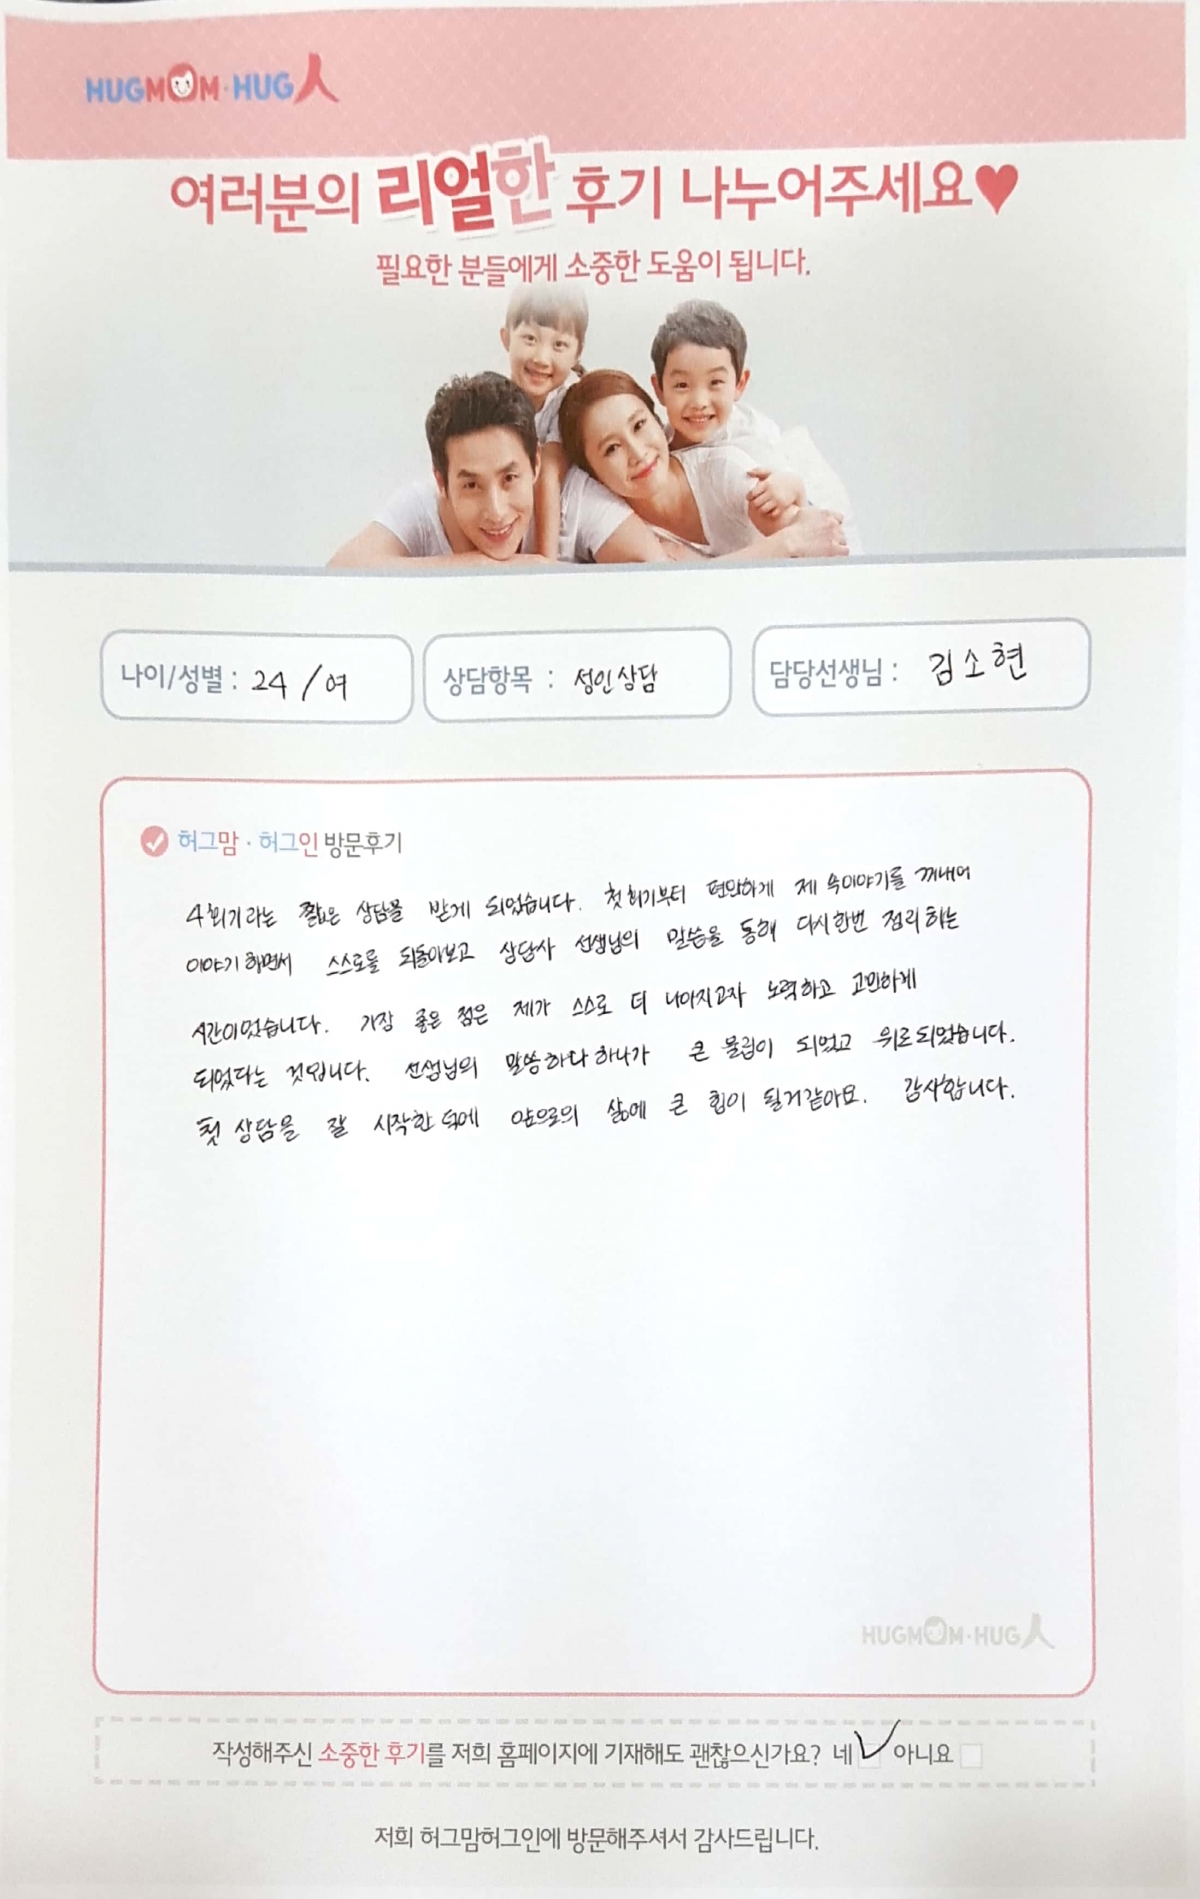 HUGMOM·HUG人
여러분의 리얼한 후기 나누어주세요♥
필요한 분들에게 소중한 도움이 됩니다.
나이/성별 : 24 / 여
상담항목 : 성인상담
담당선생님 : 김소현
허그맘 · 허그인 방문후기
4회기라는 짧은 상담을 받게 되었습니다. 첫 회기부터 편안하게 제 속이야기를 꺼내어
이야기 하면서 스스로를 되돌아보고 상담사 선생님의 말씀을 통해 다시한번 정리하는
시간이었습니다. 가장 좋은 점은 제가 스스로 더 나아지고자 노력하고 고민하게
되었다는 것입니다. 선생님의 말씀하나 하나가 큰 울림이 되었고 위로되었습니다.
첫 상담을 잘 시작한 덕에 앞으로의 삶에 큰 힘이 될거같아요. 감사합니다.
HUGMOM·HUG人
작성해주신 소중한 후기를 저희 홈페이지에 기재해도 괜찮으신가요? 네 ✓ 아니요 □
저희 허그맘허그인에 방문해주셔서 감사드립니다.